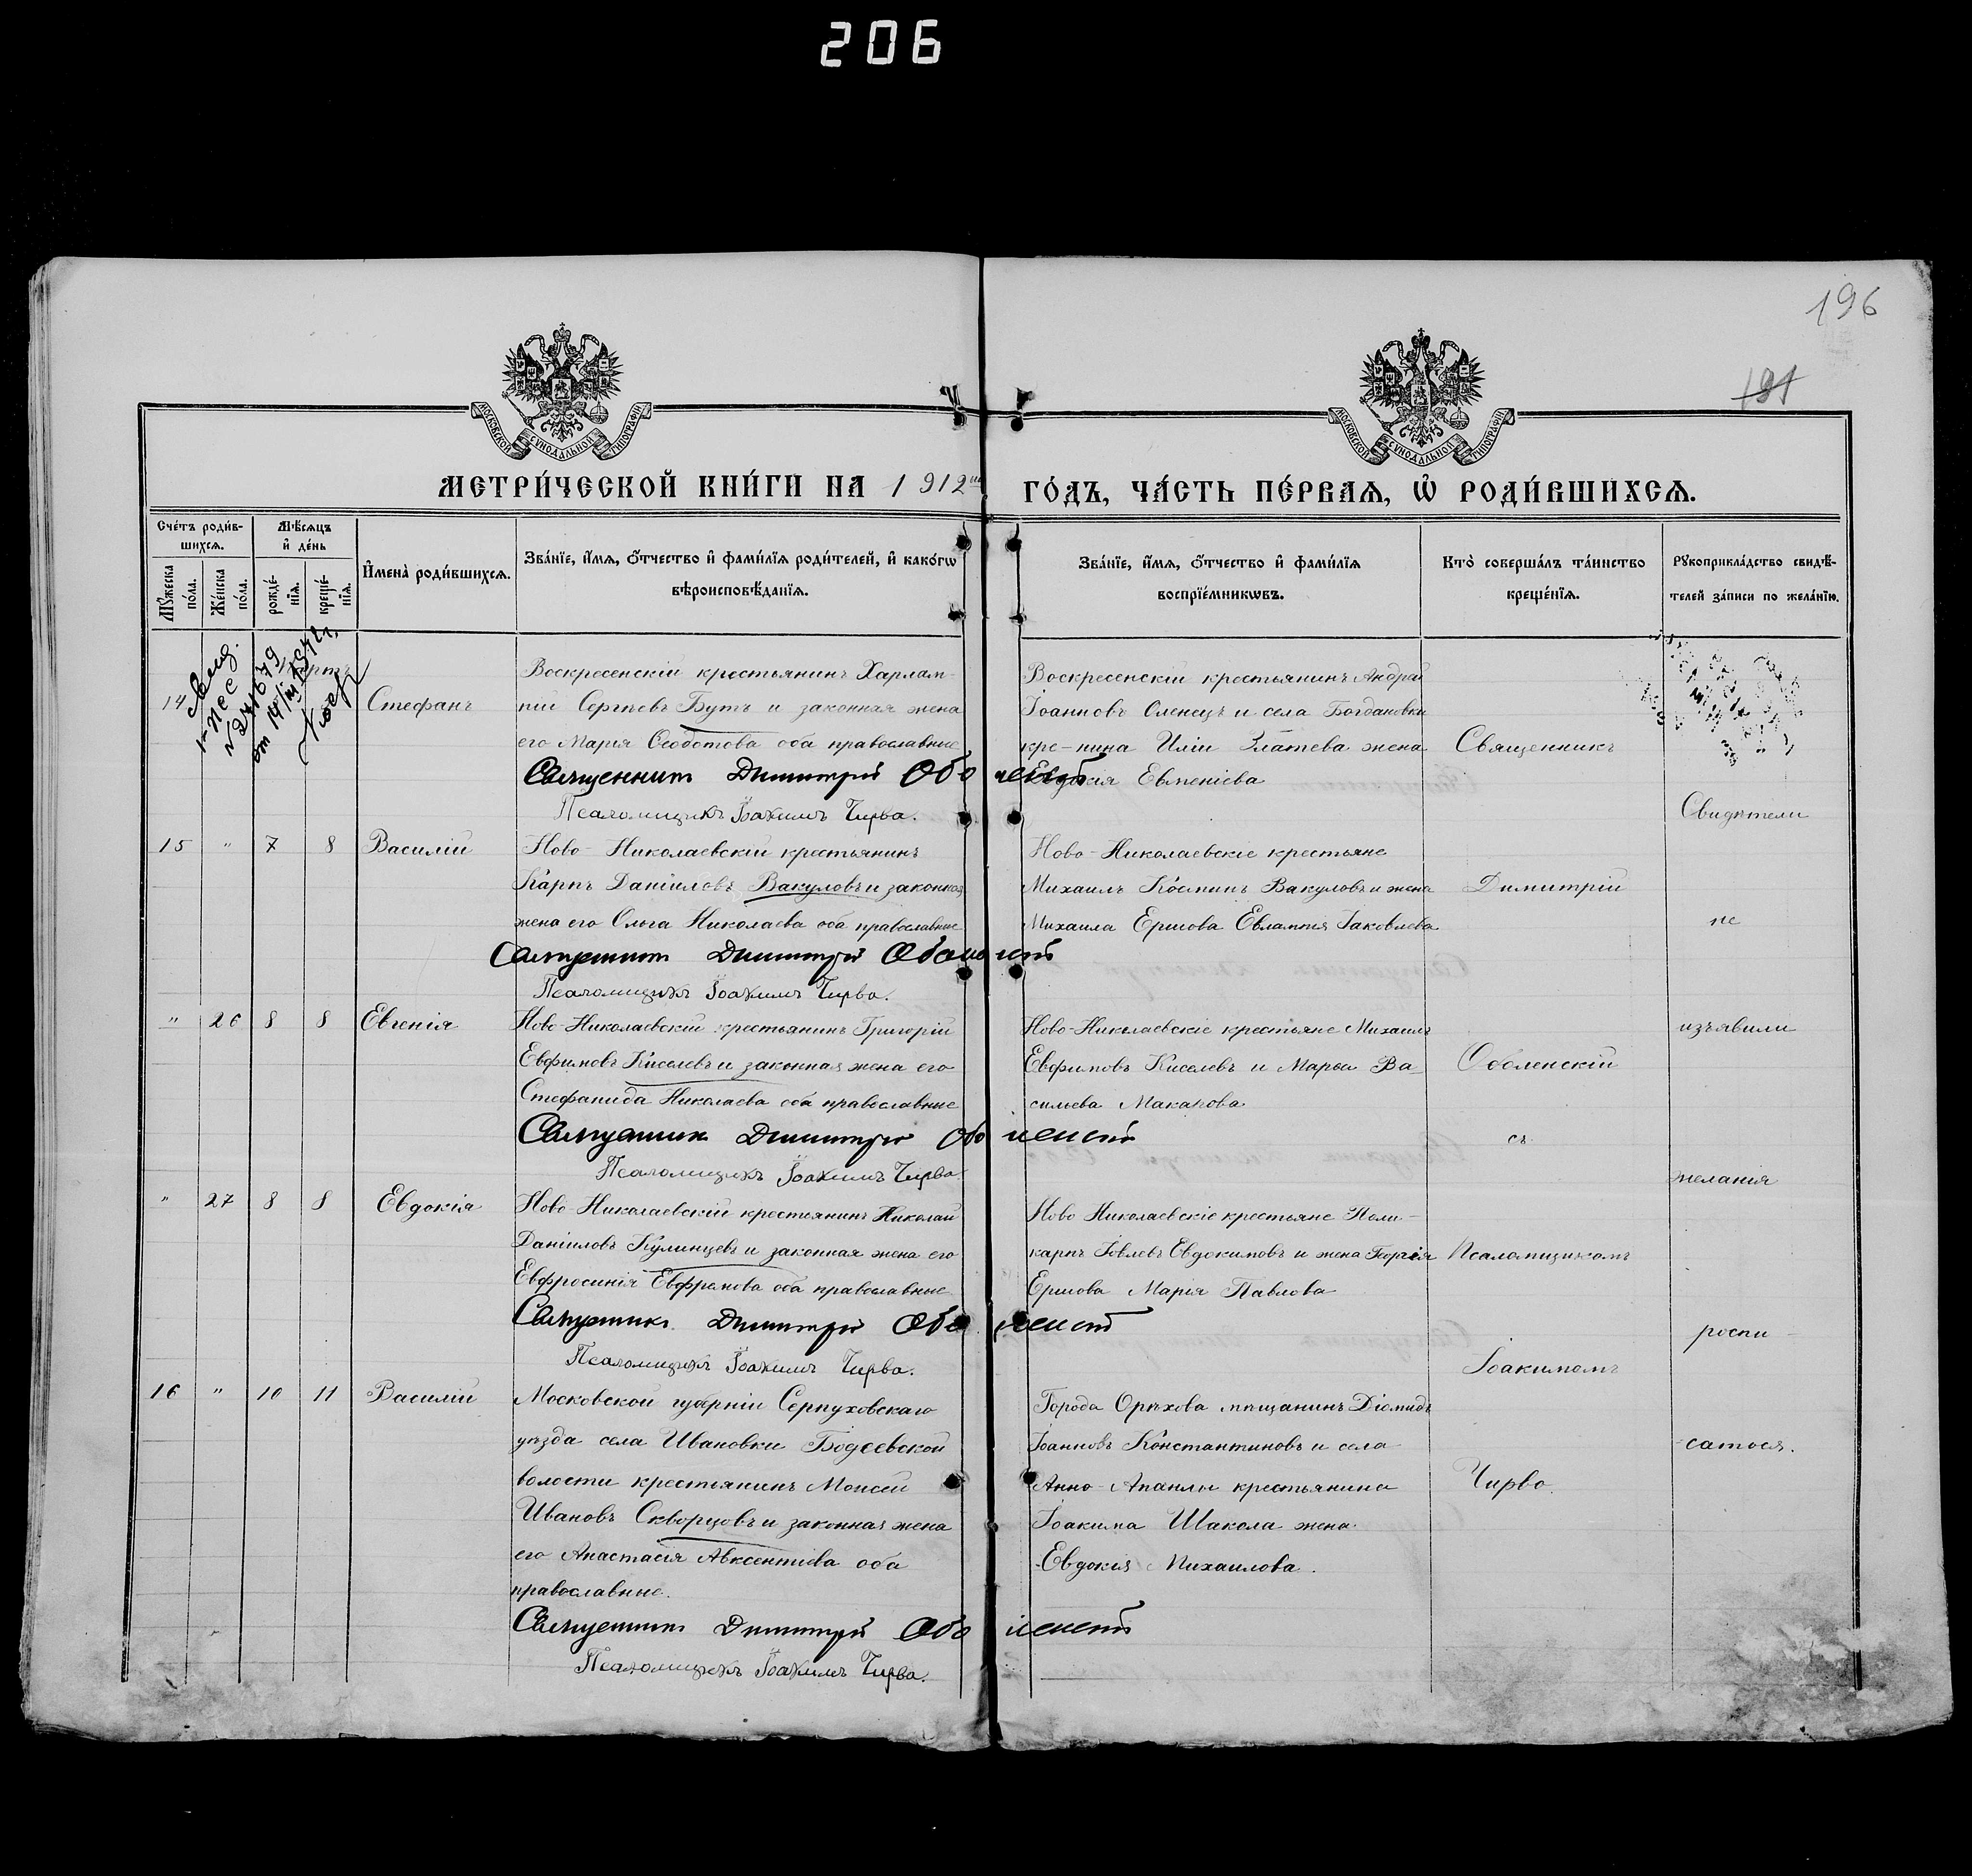 206
196
191
МОСКОВСКОЙ СѴНОДАЛЬНОЙ ТИПОГРАФІИ
МОСКОВСКОЙ СѴНОДАЛЬНОЙ ТИПОГРАФІИ
МЕТРИ́ЧЕСКОЙ КНИ́ГИ НА 1912й ГО́ДЪ, ЧА́СТЬ ПЕ́РВАѦ, Ѡ҆ РОДИ́ВШИХСѦ.
Сче́тъ роди́в-
шихсѧ.
Мѣ́сѧцъ
и҆ де́нь
Мꙋ́жеска по́ла.
Же́нска по́ла.
рожде́-
нїѧ.
креще́-
нїѧ.
И҆мена̀ роди́вшихсѧ.
Зва́нїе, и҆́мѧ, ѻ҆́тчество и҆ фами́лїѧ роди́телей, и҆ како́гѡ
вѣроисповѣ́данїѧ.
Зва́нїе, и҆́мѧ, ѻ҆́тчество и҆ фами́лїѧ
воспрїе́мникѡвъ.
Кто̀ соверша́лъ та́инство
креще́нїѧ.
Рꙋкоприкла́дство свидѣ́-
телей за́писи по жела́нїю.
14
Стефанъ
Воскресенскій крестьянинъ Харлам-
пій Сергѣевъ Бутъ и законная жена
его Марія оба православные
Священникъ Димитрій Оболенскій
Псаломщикъ Іоакимъ Чирва.
Воскресенскій крестьянинъ Андрей
Іоанновъ Оленецъ и села Богдановки
кре-нина Иліи Златева жена
Евдокія Евменіева
15 " 7 8 Василій
Ново-Николаевскій крестьянинъ
Карпъ Даніиловъ Вакуловъ и законная
жена его Ольга Николаева оба православные
Священникъ Димитрій Оболенскій
Псаломщикъ Іоакимъ Чирва.
Ново-Николаевскіе крестьяне
Михаилъ Косминъ Вакуловъ и жена
Михаила Ершова Евлампія Іаковлева
" 26 8 8 Евгенія
Ново-Николаевскій крестьянинъ Григорій
Евфимовъ Киселевъ и законная жена его
Стефанида Николаева оба православные
Священникъ Димитрій Оболенскій
Псаломщикъ Іоакимъ Чирва.
Ново-Николаевскіе крестьяне Михаилъ
Евфимовъ Киселевъ и Марѳа Ва-
сильева Макарова
" 27 8 8 Евдокія
Ново-Николаевскій крестьянинъ Николай
Даніиловъ Кулинцевъ и законная жена его
Евфросинія оба православные
Священникъ Димитрій Оболенскій
Псаломщикъ Іоакимъ Чирва.
Ново Николаевскіе крестьяне Поли-
карпъ Іовлевъ Евдокимовъ и жена Георгія
Ершова Марія Павлова
16 " 10 11 Василій
Московской губерніи Серпуховскаго
уѣзда села Ивановки
волости крестьянинъ Моисей
Ивановъ Скворцовъ и законная жена
его Анастасія Авксентіева оба
православные.
Священникъ Димитрій Оболенскій
Псаломщикъ Іоакимъ Чирва.
Города Орѣхова мѣщанинъ Діомидъ
Іоанновъ Константиновъ и села
Анно-Апанлы крестьянина
Іоакима Шакола жена
Евдокія Михаилова.
Священникъ
Димитрій
Оболенскій
съ
Псаломщикомъ
Іоакимомъ
Чирво.
Свидѣтели
не
изъявили
желанія
роспи-
саться.